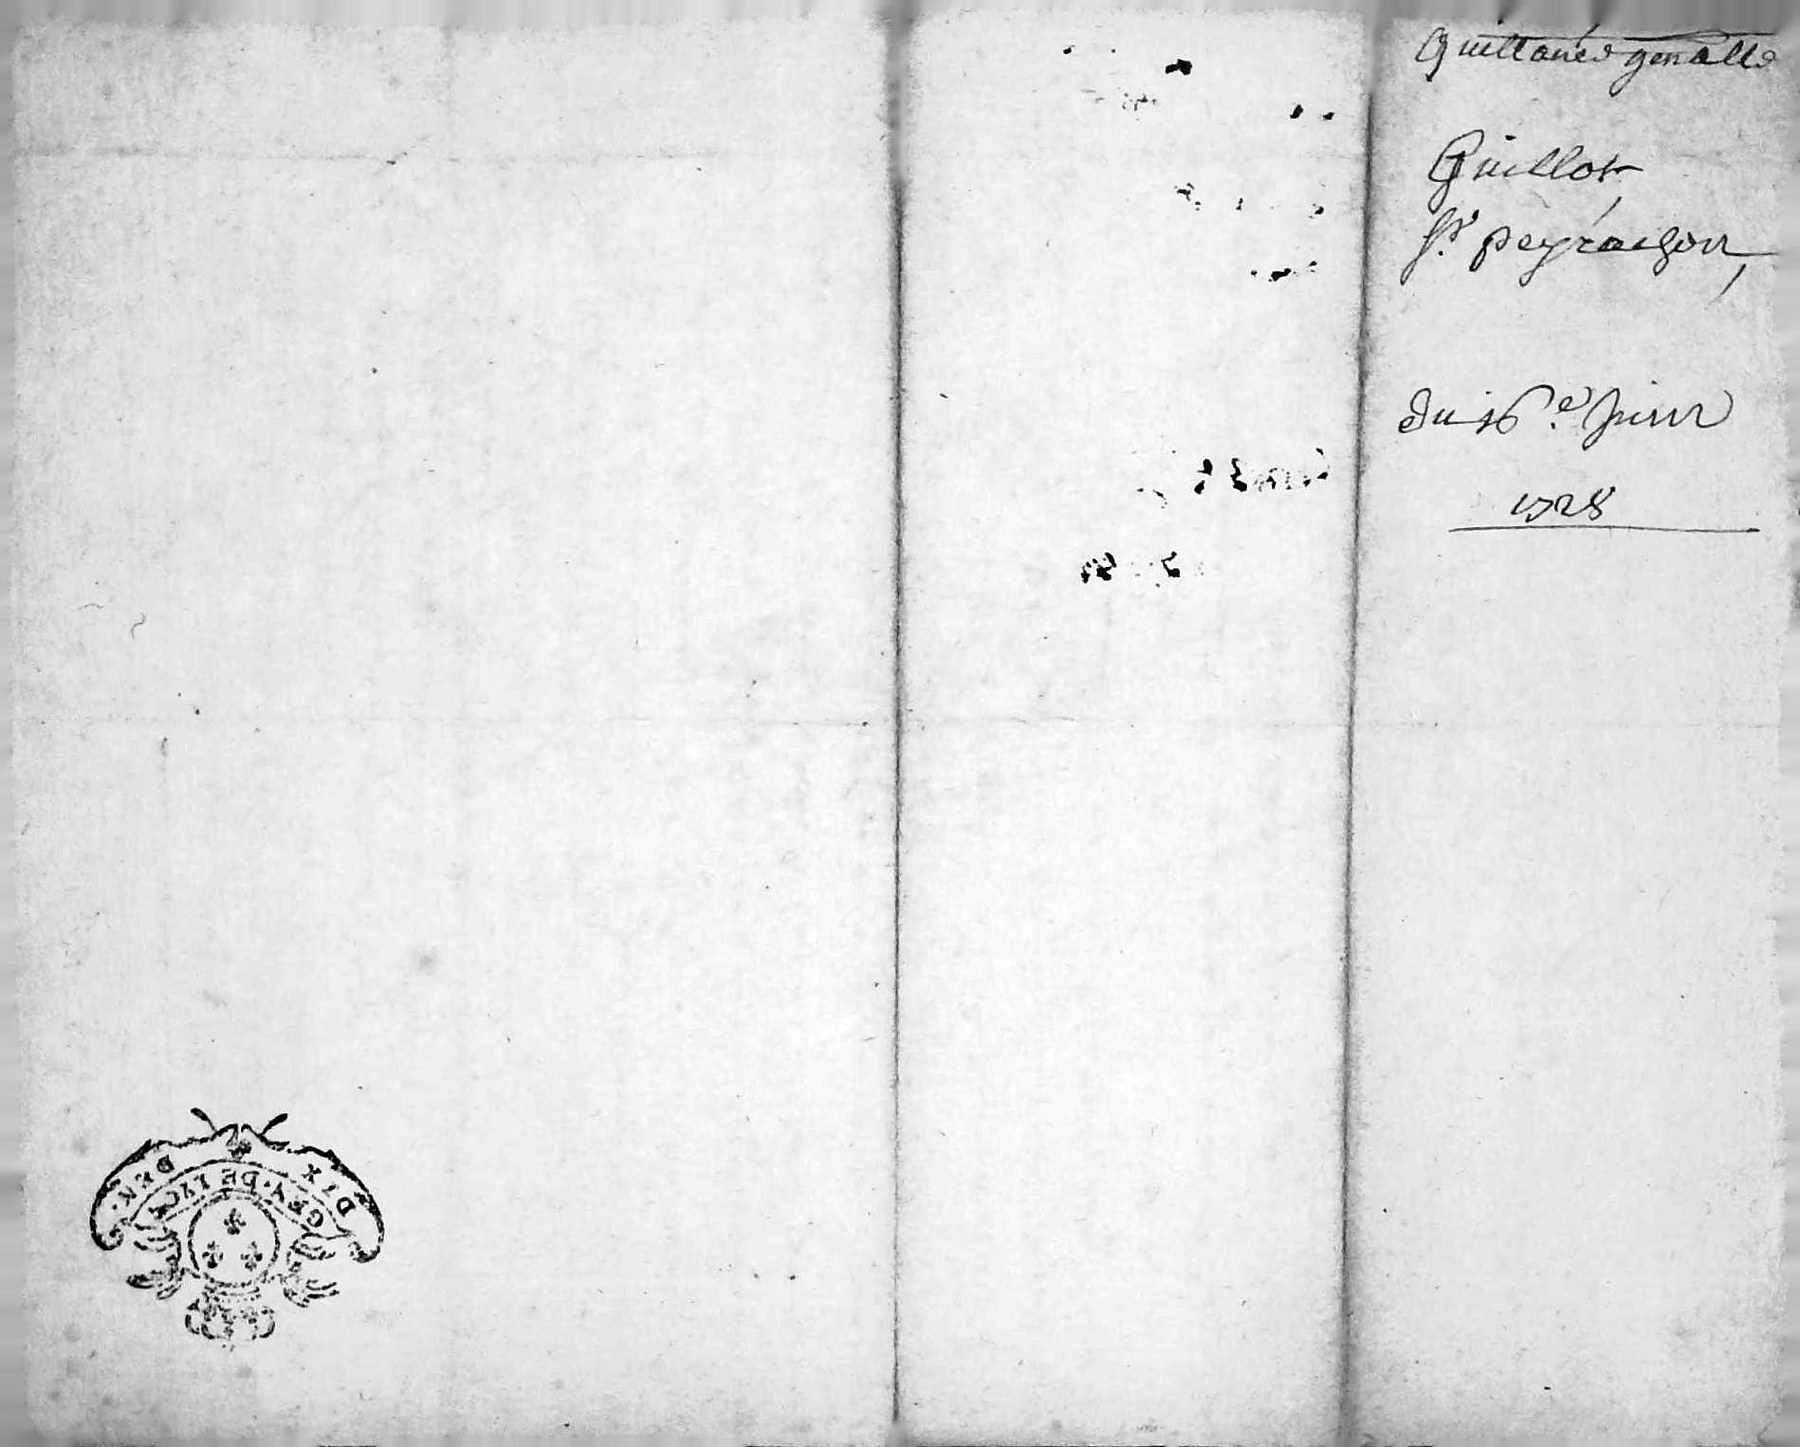 Quittance genalle
Guillot
Sr peyrachon
du 16e Juin
1728
DIX DEN.
GEN. DE LYON